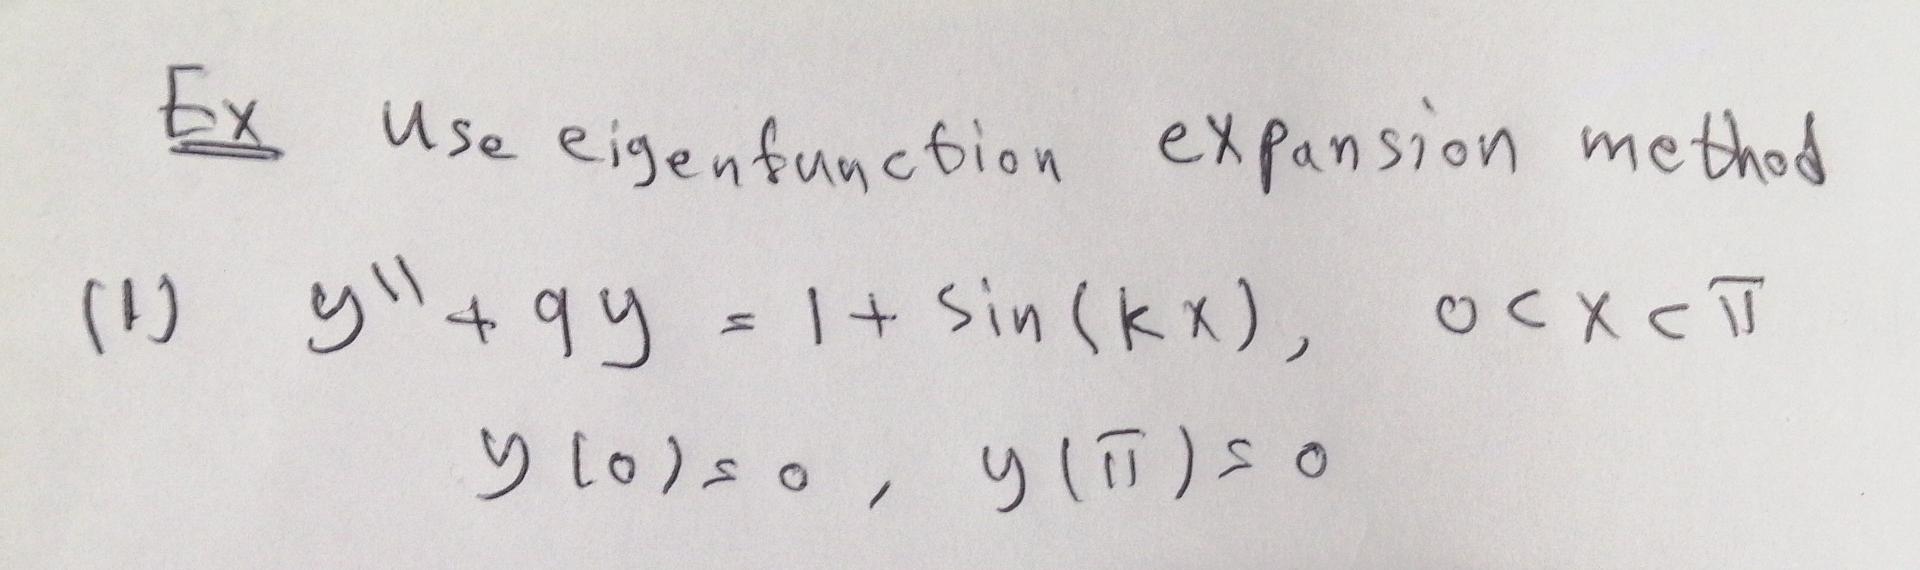 Ex Use eigenfunction expansion method
(1) y'' + 9y = 1 + sin(kx), 0 < x < π
y(0) = 0, y(π) = 0